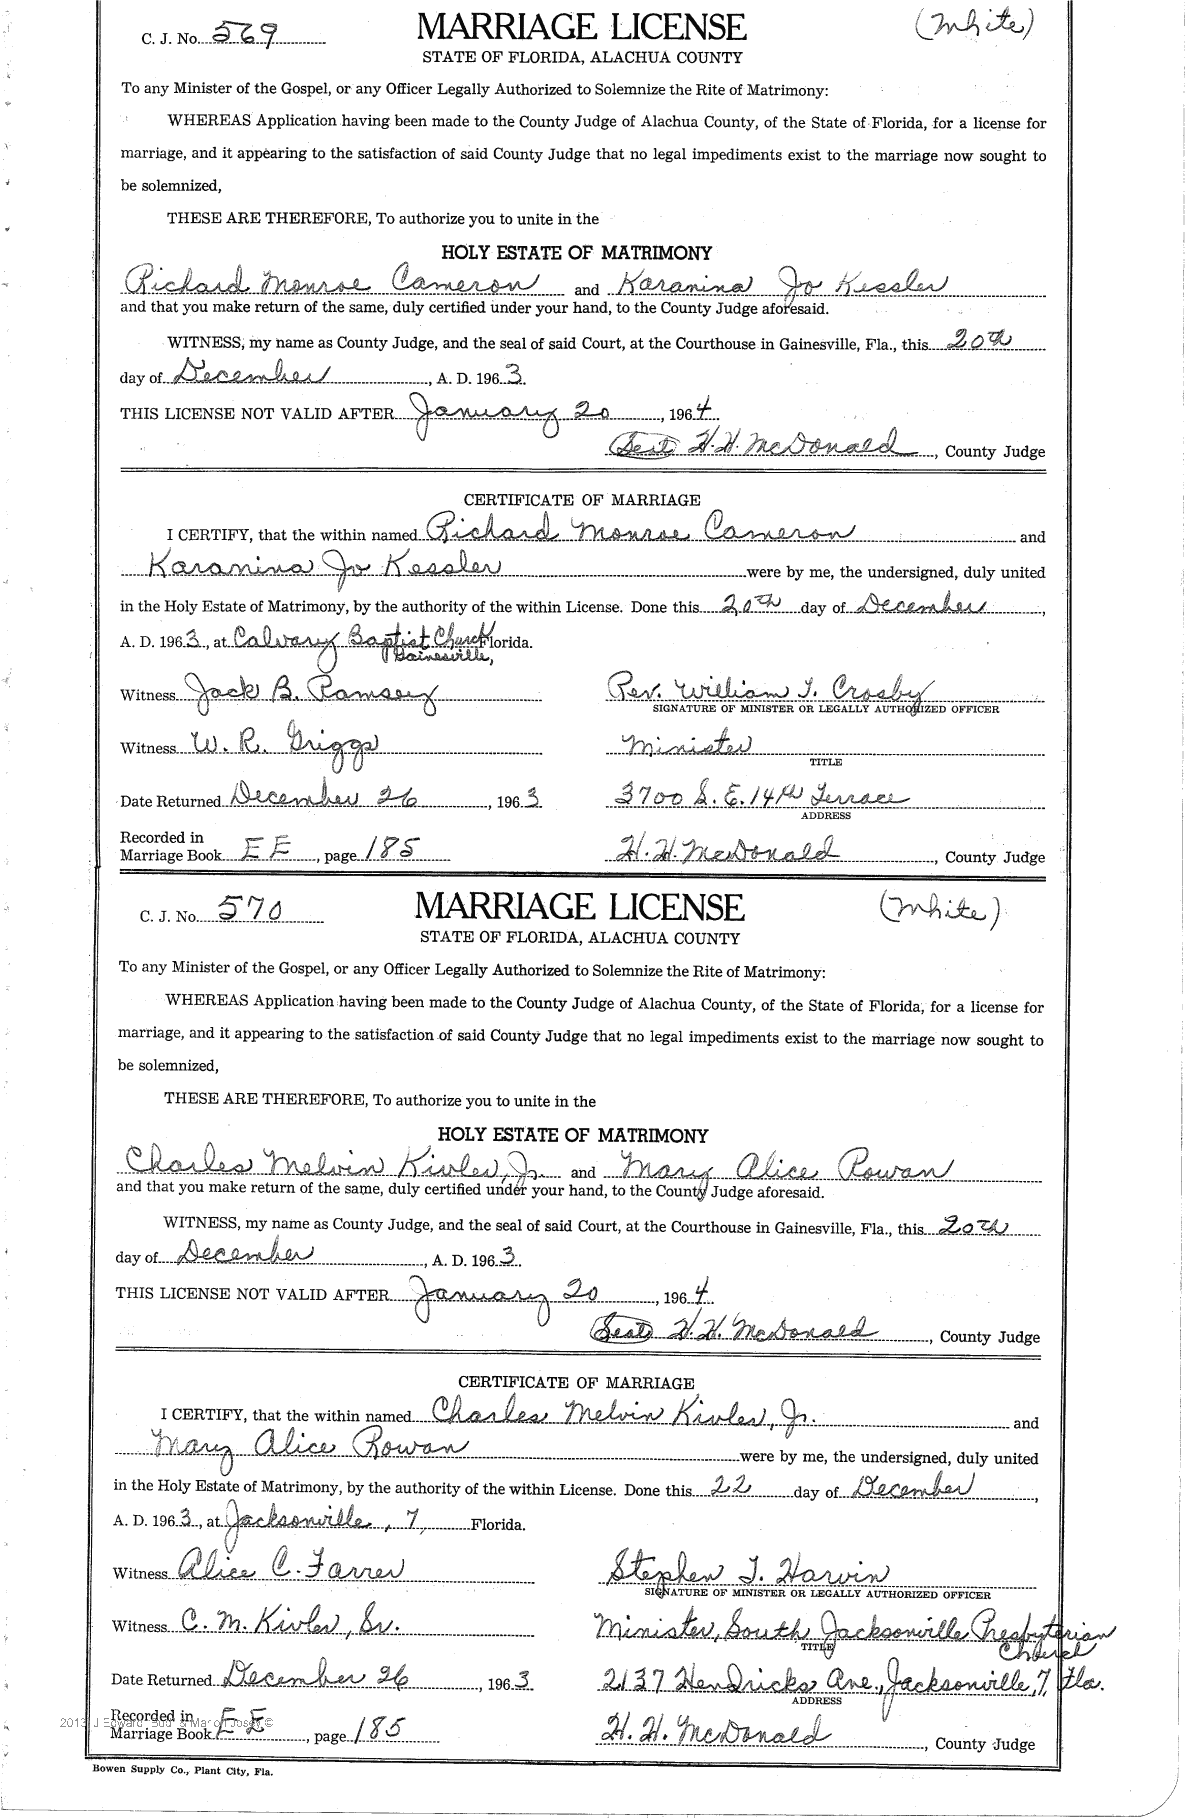 C. J. No. 569 MARRIAGE LICENSE (White)
STATE OF FLORIDA, ALACHUA COUNTY
To any Minister of the Gospel, or any Officer Legally Authorized to Solemnize the Rite of Matrimony:
WHEREAS Application having been made to the County Judge of Alachua County, of the State of Florida, for a license for
marriage, and it appearing to the satisfaction of said County Judge that no legal impediments exist to the marriage now sought to
be solemnized,
THESE ARE THEREFORE, To authorize you to unite in the
HOLY ESTATE OF MATRIMONY
Richard Monroe Cameron and Karanina Jo Kessler
and that you make return of the same, duly certified under your hand, to the County Judge aforesaid.
WITNESS, my name as County Judge, and the seal of said Court, at the Courthouse in Gainesville, Fla., this 20th
day of December, A. D. 1963.
THIS LICENSE NOT VALID AFTER January 20, 1964
(Seal) H. H. McDonald, County Judge
CERTIFICATE OF MARRIAGE
I CERTIFY, that the within named Richard Monroe Cameron and
Karanina Jo Kessler were by me, the undersigned, duly united
in the Holy Estate of Matrimony, by the authority of the within License. Done this 20th day of December,
A. D. 1963, at Calvary Baptist Church Florida.
Gainesville,
Witness Jack B. Ramsey Rev. William T. Crosby
SIGNATURE OF MINISTER OR LEGALLY AUTHORIZED OFFICER
Witness W. R. Griggs Minister
TITLE
Date Returned December 26, 1963 3700 S. E. 14th Terrace
ADDRESS
Recorded in
Marriage Book EE, page 185 H. H. McDonald, County Judge
C. J. No. 570 MARRIAGE LICENSE (White)
STATE OF FLORIDA, ALACHUA COUNTY
To any Minister of the Gospel, or any Officer Legally Authorized to Solemnize the Rite of Matrimony:
WHEREAS Application having been made to the County Judge of Alachua County, of the State of Florida, for a license for
marriage, and it appearing to the satisfaction of said County Judge that no legal impediments exist to the marriage now sought to
be solemnized,
THESE ARE THEREFORE, To authorize you to unite in the
HOLY ESTATE OF MATRIMONY
Charles Melvin Kivler, Jr. and Mary Alice Rowan
and that you make return of the same, duly certified under your hand, to the County Judge aforesaid.
WITNESS, my name as County Judge, and the seal of said Court, at the Courthouse in Gainesville, Fla., this 20th
day of December, A. D. 1963.
THIS LICENSE NOT VALID AFTER January 20, 1964
(Seal) H. H. McDonald, County Judge
CERTIFICATE OF MARRIAGE
I CERTIFY, that the within named Charles Melvin Kivler, Jr. and
Mary Alice Rowan were by me, the undersigned, duly united
in the Holy Estate of Matrimony, by the authority of the within License. Done this 22 day of December,
A. D. 1963, at Jacksonville, 7, Florida.
Witness Alice C. Farrer Stephen T. Harvin
SIGNATURE OF MINISTER OR LEGALLY AUTHORIZED OFFICER
Witness C. M. Kivler, Sr. Minister, South Jacksonville Presbyterian
TITLE Church
Date Returned December 26, 1963 2137 Hendricks Ave., Jacksonville, 7, Fla.
ADDRESS
Recorded in
Marriage Book EE, page 185 H. H. McDonald, County Judge
Bowen Supply Co., Plant City, Fla.